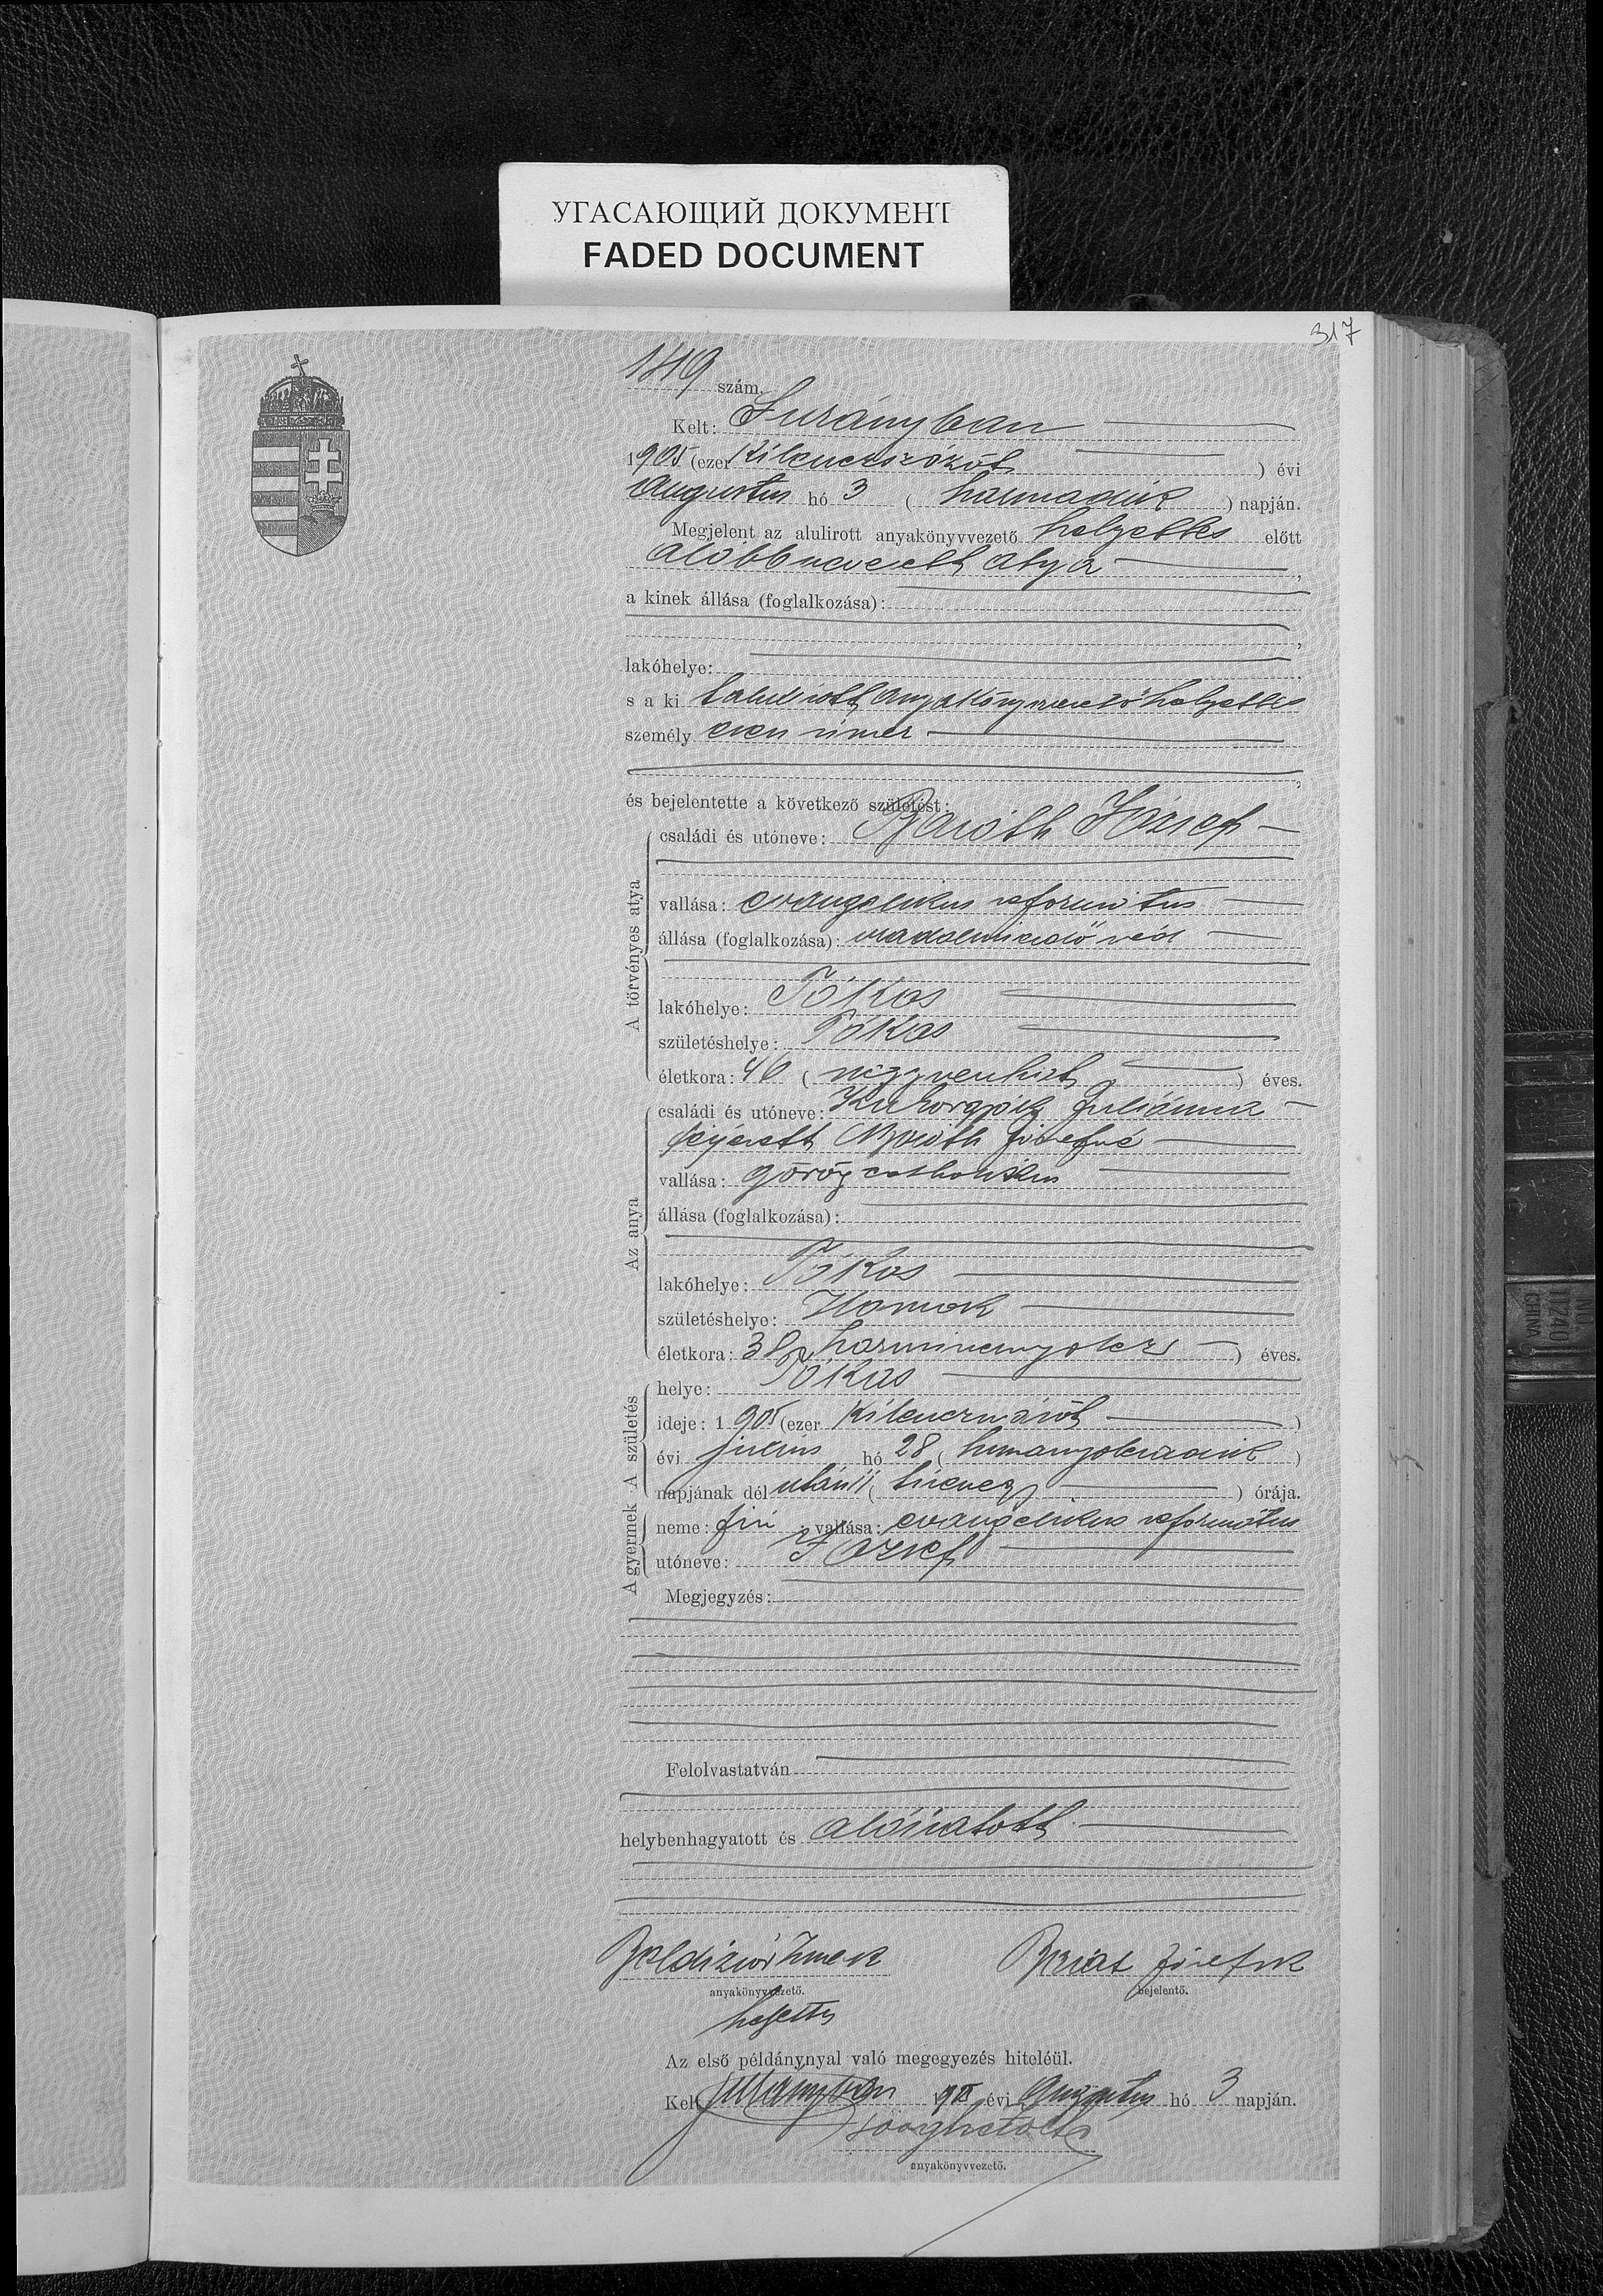 УГАСАЮЩИЙ ДОКУМЕНТ
FADED DOCUMENT
317
149 szám.
Kelt: Surányban
1905 (ezer kilenczszázöt ) évi
Augustus hó 3 ( harmadik ) napján.
Megjelent az alulirott anyakönyvvezető helyettes előtt
alóbbnevezett atya ,
a kinek állása (foglalkozása):
lakóhelye: ,
s a ki t alulirott anyakönyvvezető helyettes
személyesen ismer
és bejelentette a következő születést:
A törvényes atya
családi és utóneve: József
vallása: evangelikus református
állása (foglalkozása):
lakóhelye: Tókos
születéshelye: Tókos
életkora: 46 ( negyvenhat ) éves.
Az anya
családi és utóneve: Juliánna
férjezett Józsefné
vallása: görög catholikus
állása (foglalkozása):
lakóhelye: Tókos
születéshelye: Homok
életkora: 38 ( harmincznyolcz ) éves.
A születés
helye: Tókos
ideje: 1905 (ezer kilenczszázöt )
évi julius hó 28 ( huszonnyolczadik )
napjának dél után 11 ( tizenegy ) órája.
A gyermek
neme: fiú ; vallása: evangelikus református
utóneve: József
Megjegyzés:
Felolvastatván
helybenhagyatott és aláiratott
anyakönyvvezető.
helyettes
József
bejelentő.
Az első példánynyal való megegyezés hiteléül.
Kelt Surányban 1905 évi Augustus hó 3 napján.
anyakönyvvezető.